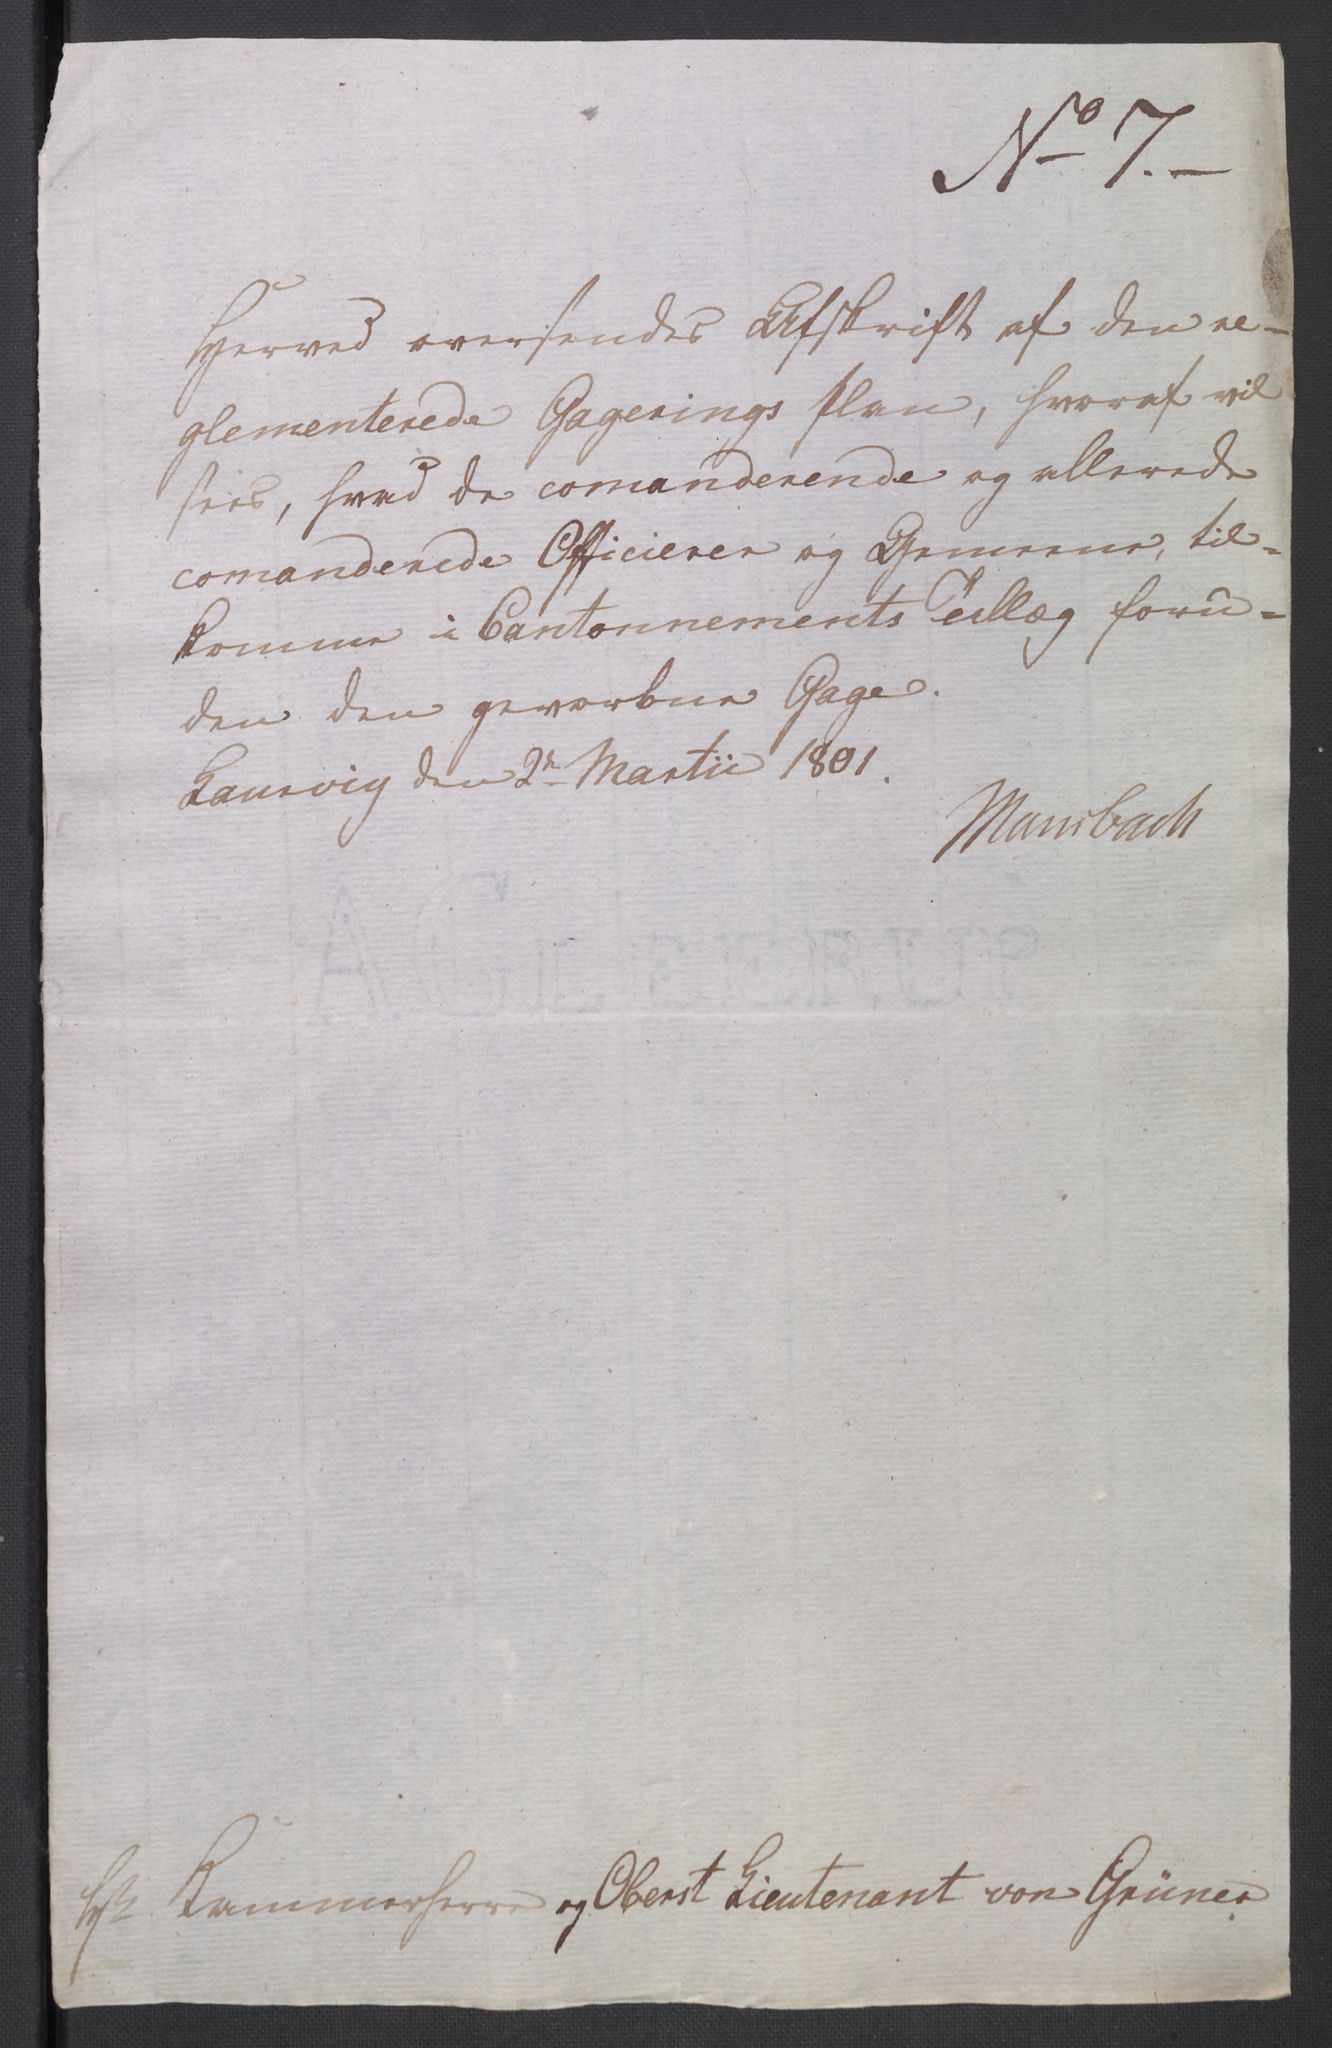 No 7.-
Herved oversendes Afskrift af den re-
glementerede Gagerings plan, hvoraf vil
sees, hvad de comanderende og allerede
comanderede Officierer og Gemeene, til-
komme i Cantonnements Tillæg foru-
den den gevorbne Gage.
Laurvig den 2n Martii 1801.
Mansbach
Hr Kammerherre og Oberst Lieutenant von Grüner